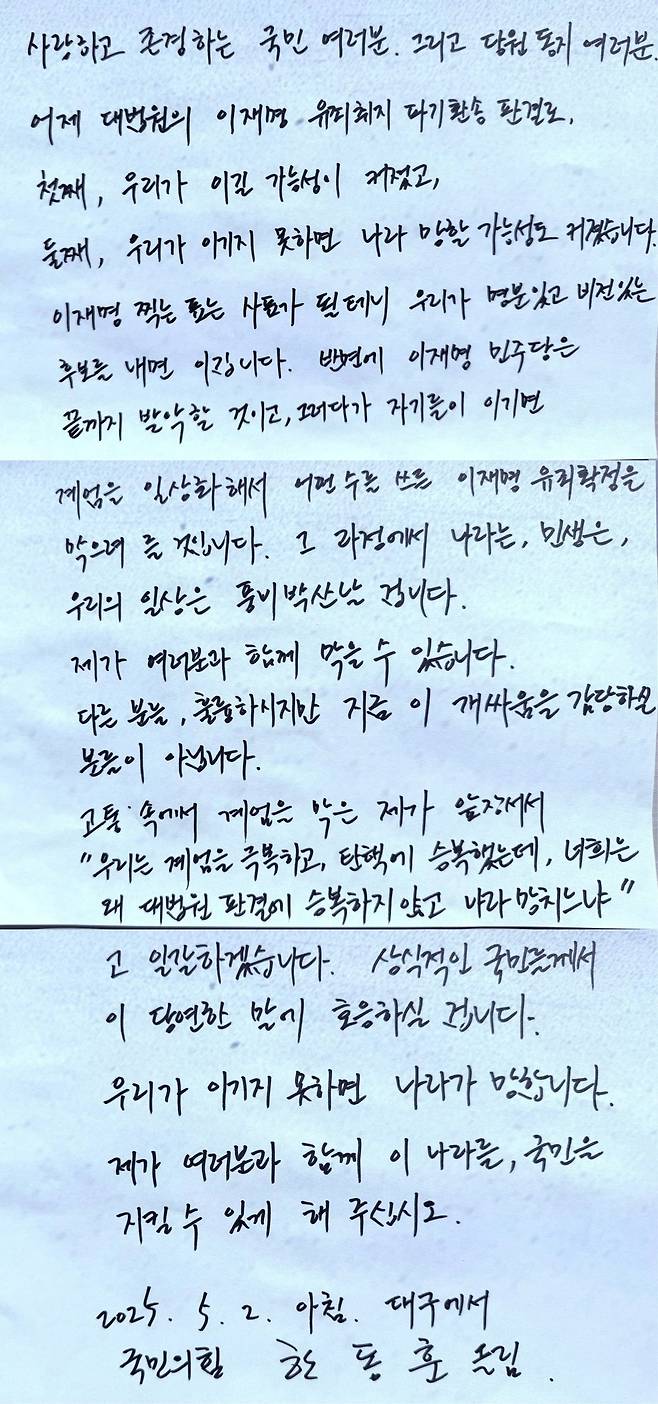 사랑하고 존경하는 국민 여러분. 그리고 당원 동지 여러분.
어제 대법원의 이재명 유죄취지 파기환송 판결로,
첫째, 우리가 이길 가능성이 커졌고,
둘째, 우리가 이기지 못하면 나라 망할 가능성도 커졌습니다.
이재명 찍는 표는 사표가 될테니 우리가 명분있고 비전있는
후보를 내면 이깁니다. 반면에 이재명 민주당은
끝까지 발악할 것이고, 그러다가 자기들이 이기면
계엄을 일상화해서 어떤 수를 쓰든 이재명 유죄확정을
막으려 들 것입니다. 그 과정에서 나라는, 민생은,
우리의 일상은 풍비박산날 겁니다.
제가 여러분과 함께 막을 수 있습니다.
다른 분들, 훌륭하시지만 지금 이 개싸움을 감당하실
분들이 아닙니다.
고통 속에서 계엄을 막은 제가 앞장서서
"우리는 계엄을 극복하고, 탄핵에 승복했는데, 너희는
왜 대법원 판결에 승복하지 않고 나라 망치느냐"
고 일갈하겠습니다. 상식적인 국민들께서
이 당연한 말에 호응하실 겁니다.
우리가 이기지 못하면 나라가 망합니다.
제가 여러분과 함께 이 나라를, 국민을
지킬 수 있게 해 주십시오.
2025. 5. 2. 아침. 대구에서
국민의힘 한 동 훈 올림.